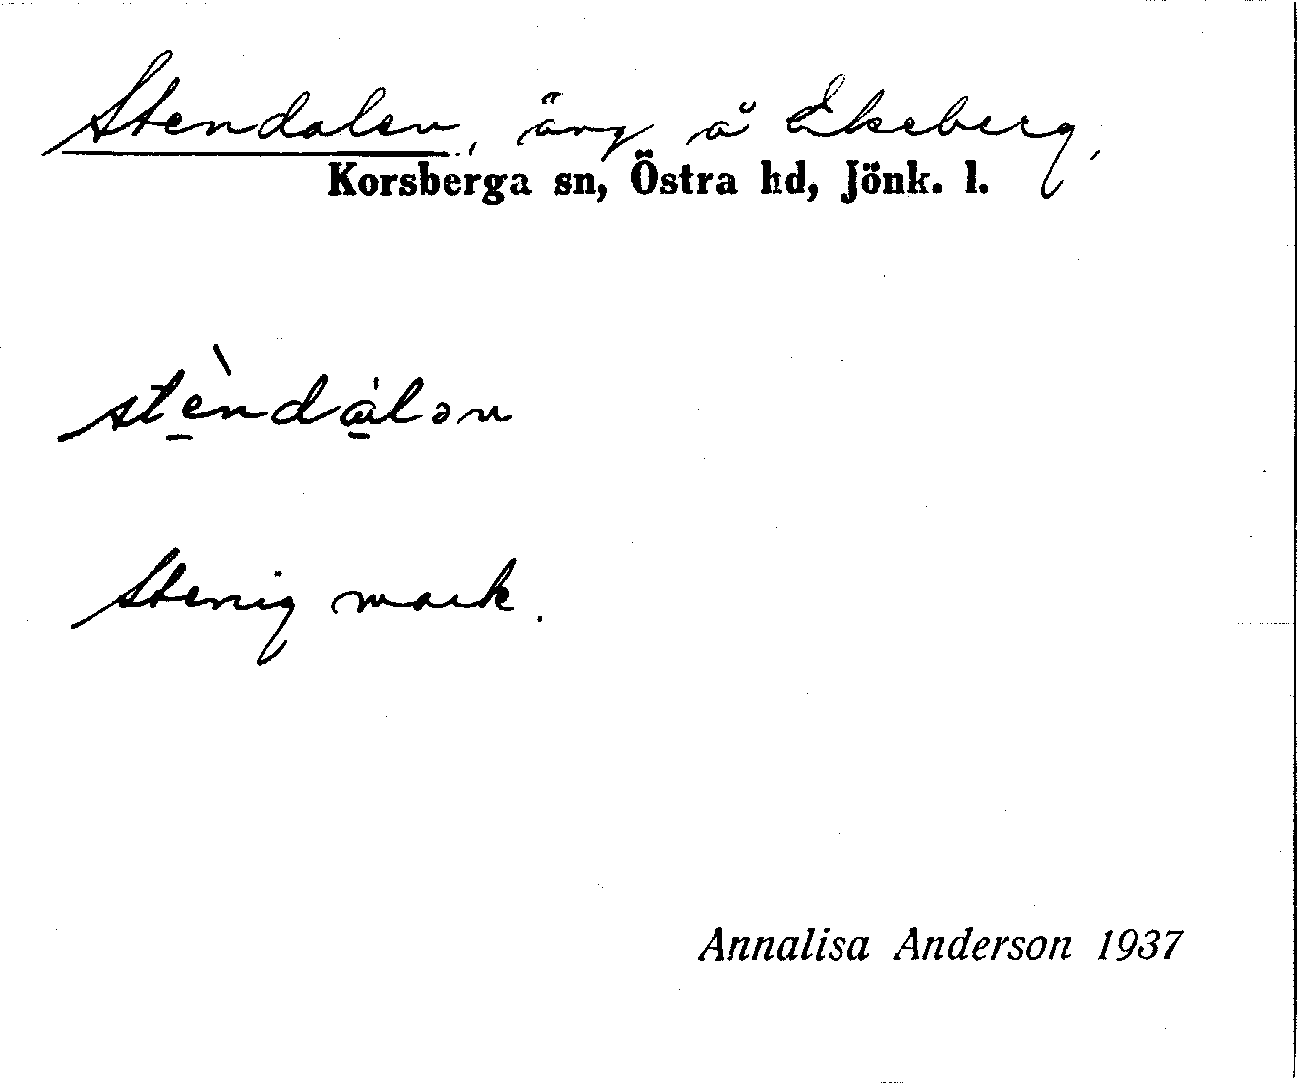 Stendalen, äng å Ekeberg,
Korsberga sn, Östra hd, Jönk. l.
stè̠ndà̠lən
Stenig mark.
Annalisa Anderson 1937